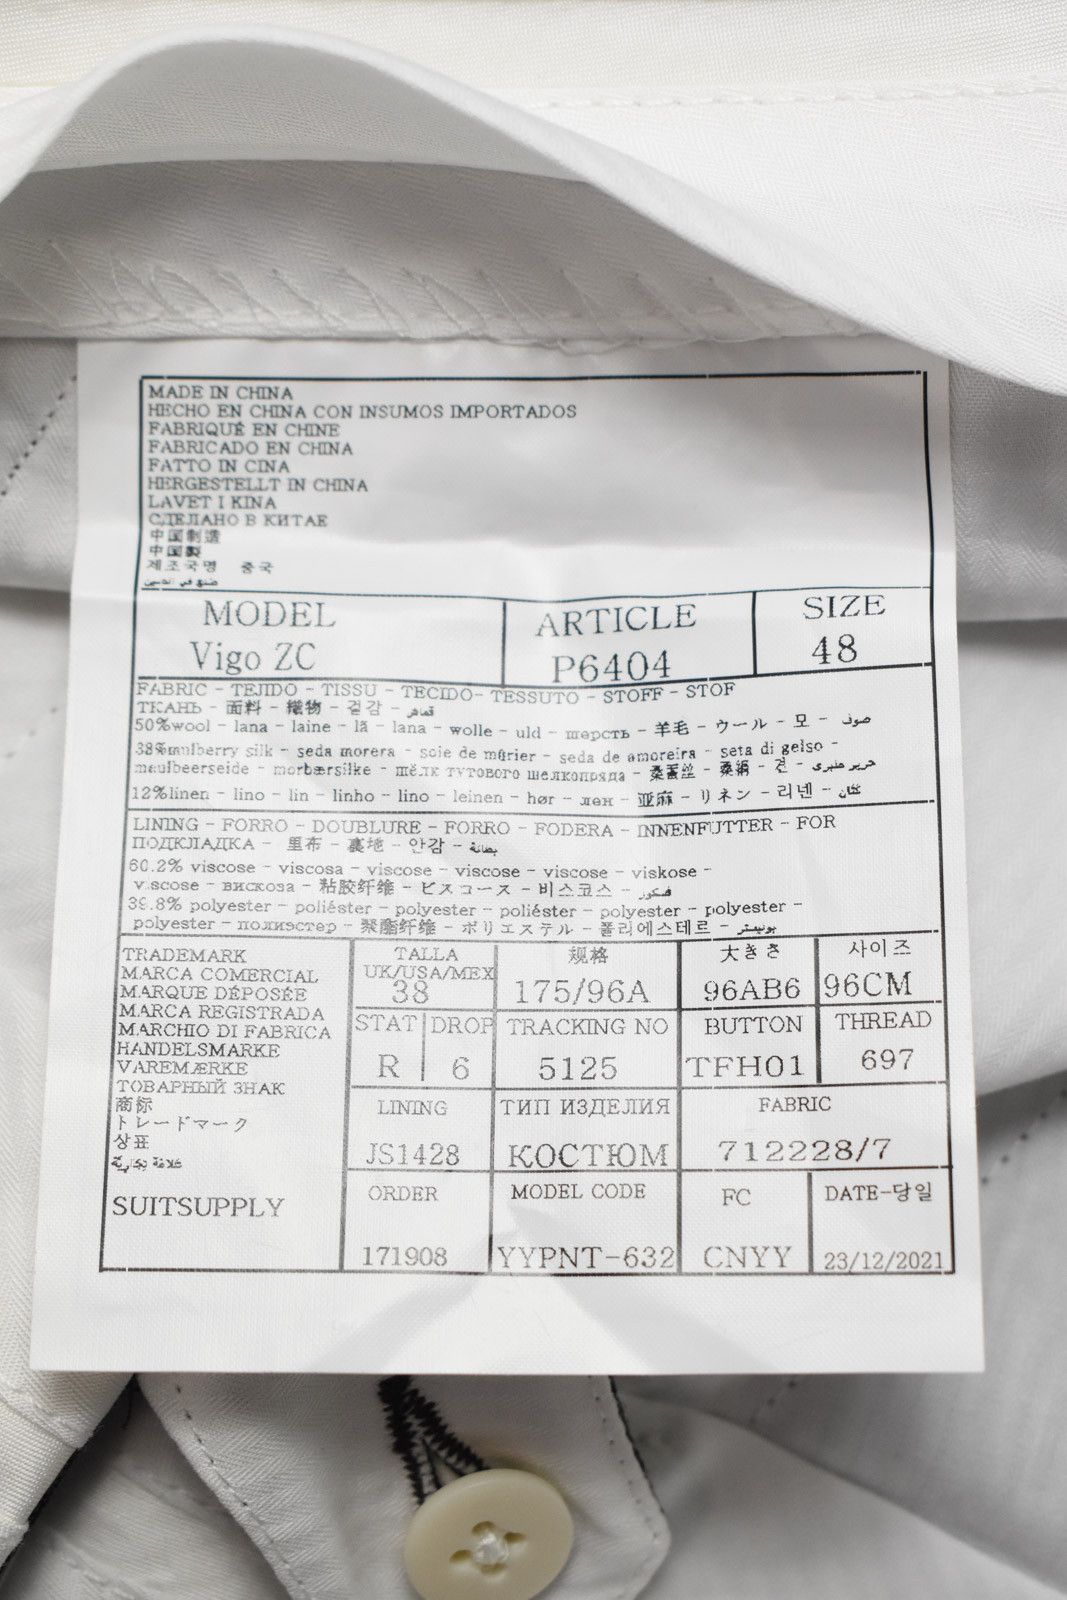 MADE IN CHINA
HECHO EN CHINA CON INSUMOS IMPORTADOS
FABRIQUÉ EN CHINE
FABRICADO EN CHINA
FATTO IN CINA
HERGESTELLT IN CHINA
LAVET I KINA
СДЕЛАНО В КИТАЕ
中国制造
中国製
제조국명 중국
صنع في الصين
MODEL ARTICLE SIZE
Vigo ZC P6404 48
FABRIC - TEJIDO - TISSU - TECIDO- TESSUTO - STOFF - STOF
ТКАНЬ - 面料 - 織物 - 겉감 - قماش
50%wool - lana - laine - lã - lana - wolle - uld - шерсть - 羊毛 - ウール - 모 - صوف
38%mulberry silk - seda morera - soie de mûrier - seda de amoreira - seta di gelso -
maulbeerseide - morbærsilke - шёлк тутового шелкопряда - 桑蚕丝 - 桑絹 - 견 - حرير
12%linen - lino - lin - linho - lino - leinen - hør - лен - 亚麻 - リネン - 리넨 - كتان
LINING - FORRO - DOUBLURE - FORRO - FODERA - INNENFUTTER - FOR
ПОДКЛАДКА - 里布 - 裏地 - 안감 - بطانة
60.2% viscose - viscosa - viscose - viscose - viscose - viskose -
viscose - вискоза - 粘胶纤维 - ビスコース - 비스코스 - فيسكوز
39.8% polyester - poliéster - polyester - poliéster - polyester - polyester -
polyester - полиэстер - 聚酯纤维 - ポリエステル - 폴리에스테르 -
TRADEMARK
MARCA COMERCIAL
MARQUE DÉPOSÉE
MARCA REGISTRADA
MARCHIO DI FABRICA
HANDELSMARKE
VAREMÆRKE
ТОВАРНЫЙ ЗНАК
商标
トレードマーク
상표
علامة تجارية
SUITSUPPLY
TALLA 规格 大きさ 사이즈
UK/USA/MEX
38 175/96A 96AB6 96CM
STAT DROP TRACKING NO BUTTON THREAD
R 6 5125 TFH01 697
LINING ТИП ИЗДЕЛИЯ FABRIC
JS1428 КОСТЮМ 712228/7
ORDER MODEL CODE FC DATE-당일
171908 YYPNT-632 CNYY 23/12/2021